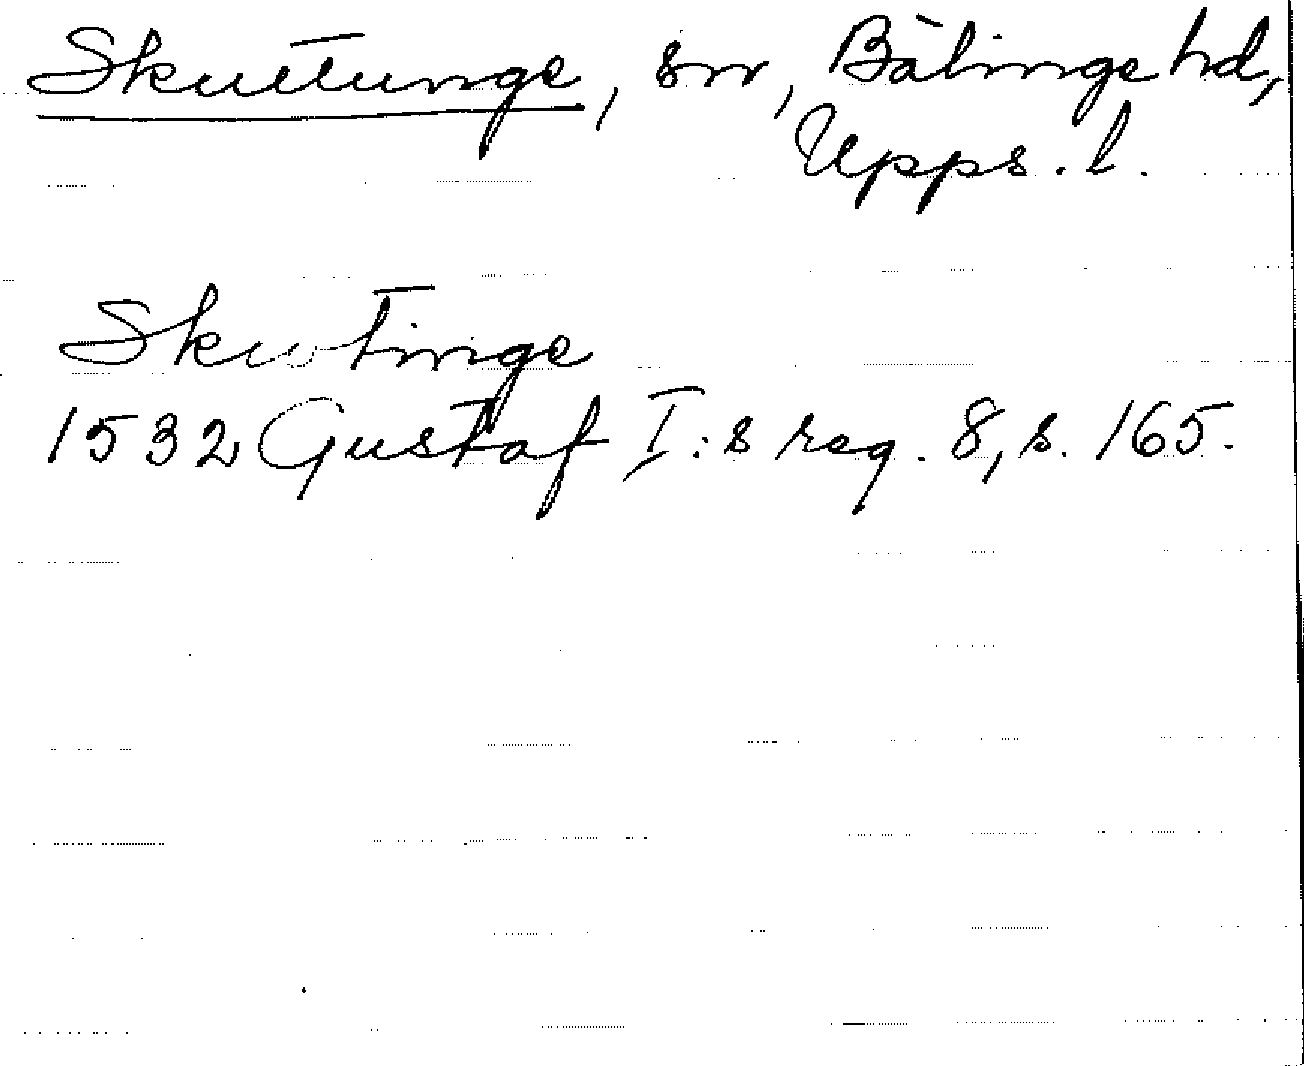 Skuttunge, sn, Bälinge hd,
Upps. l.
Skwtinge
1532 Gustaf I:s reg. 8, s. 165.